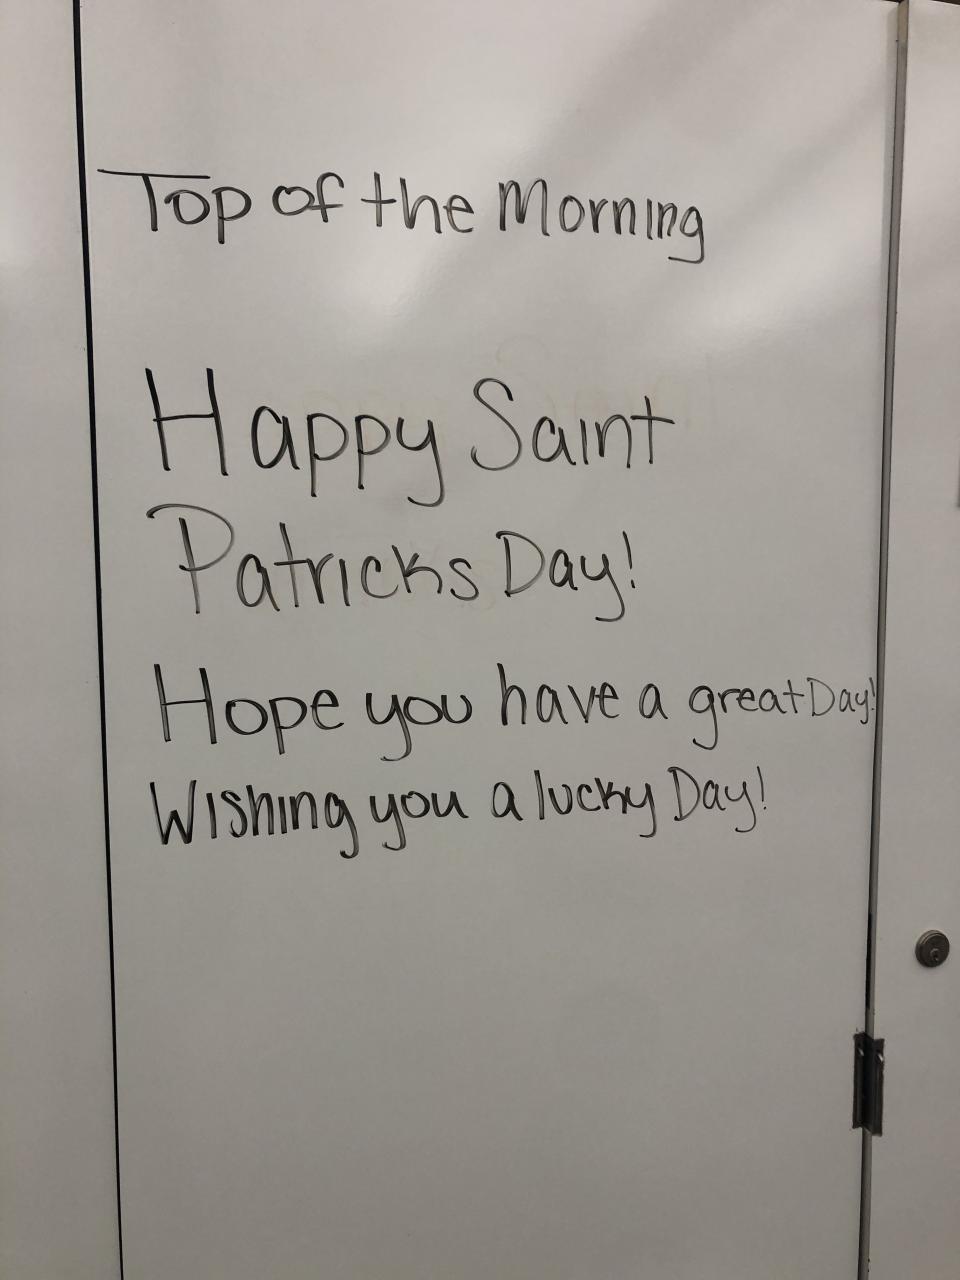 Top of the Morning
Happy Saint
Patricks Day!
Hope you have a great Day!
Wishing you a lucky Day!